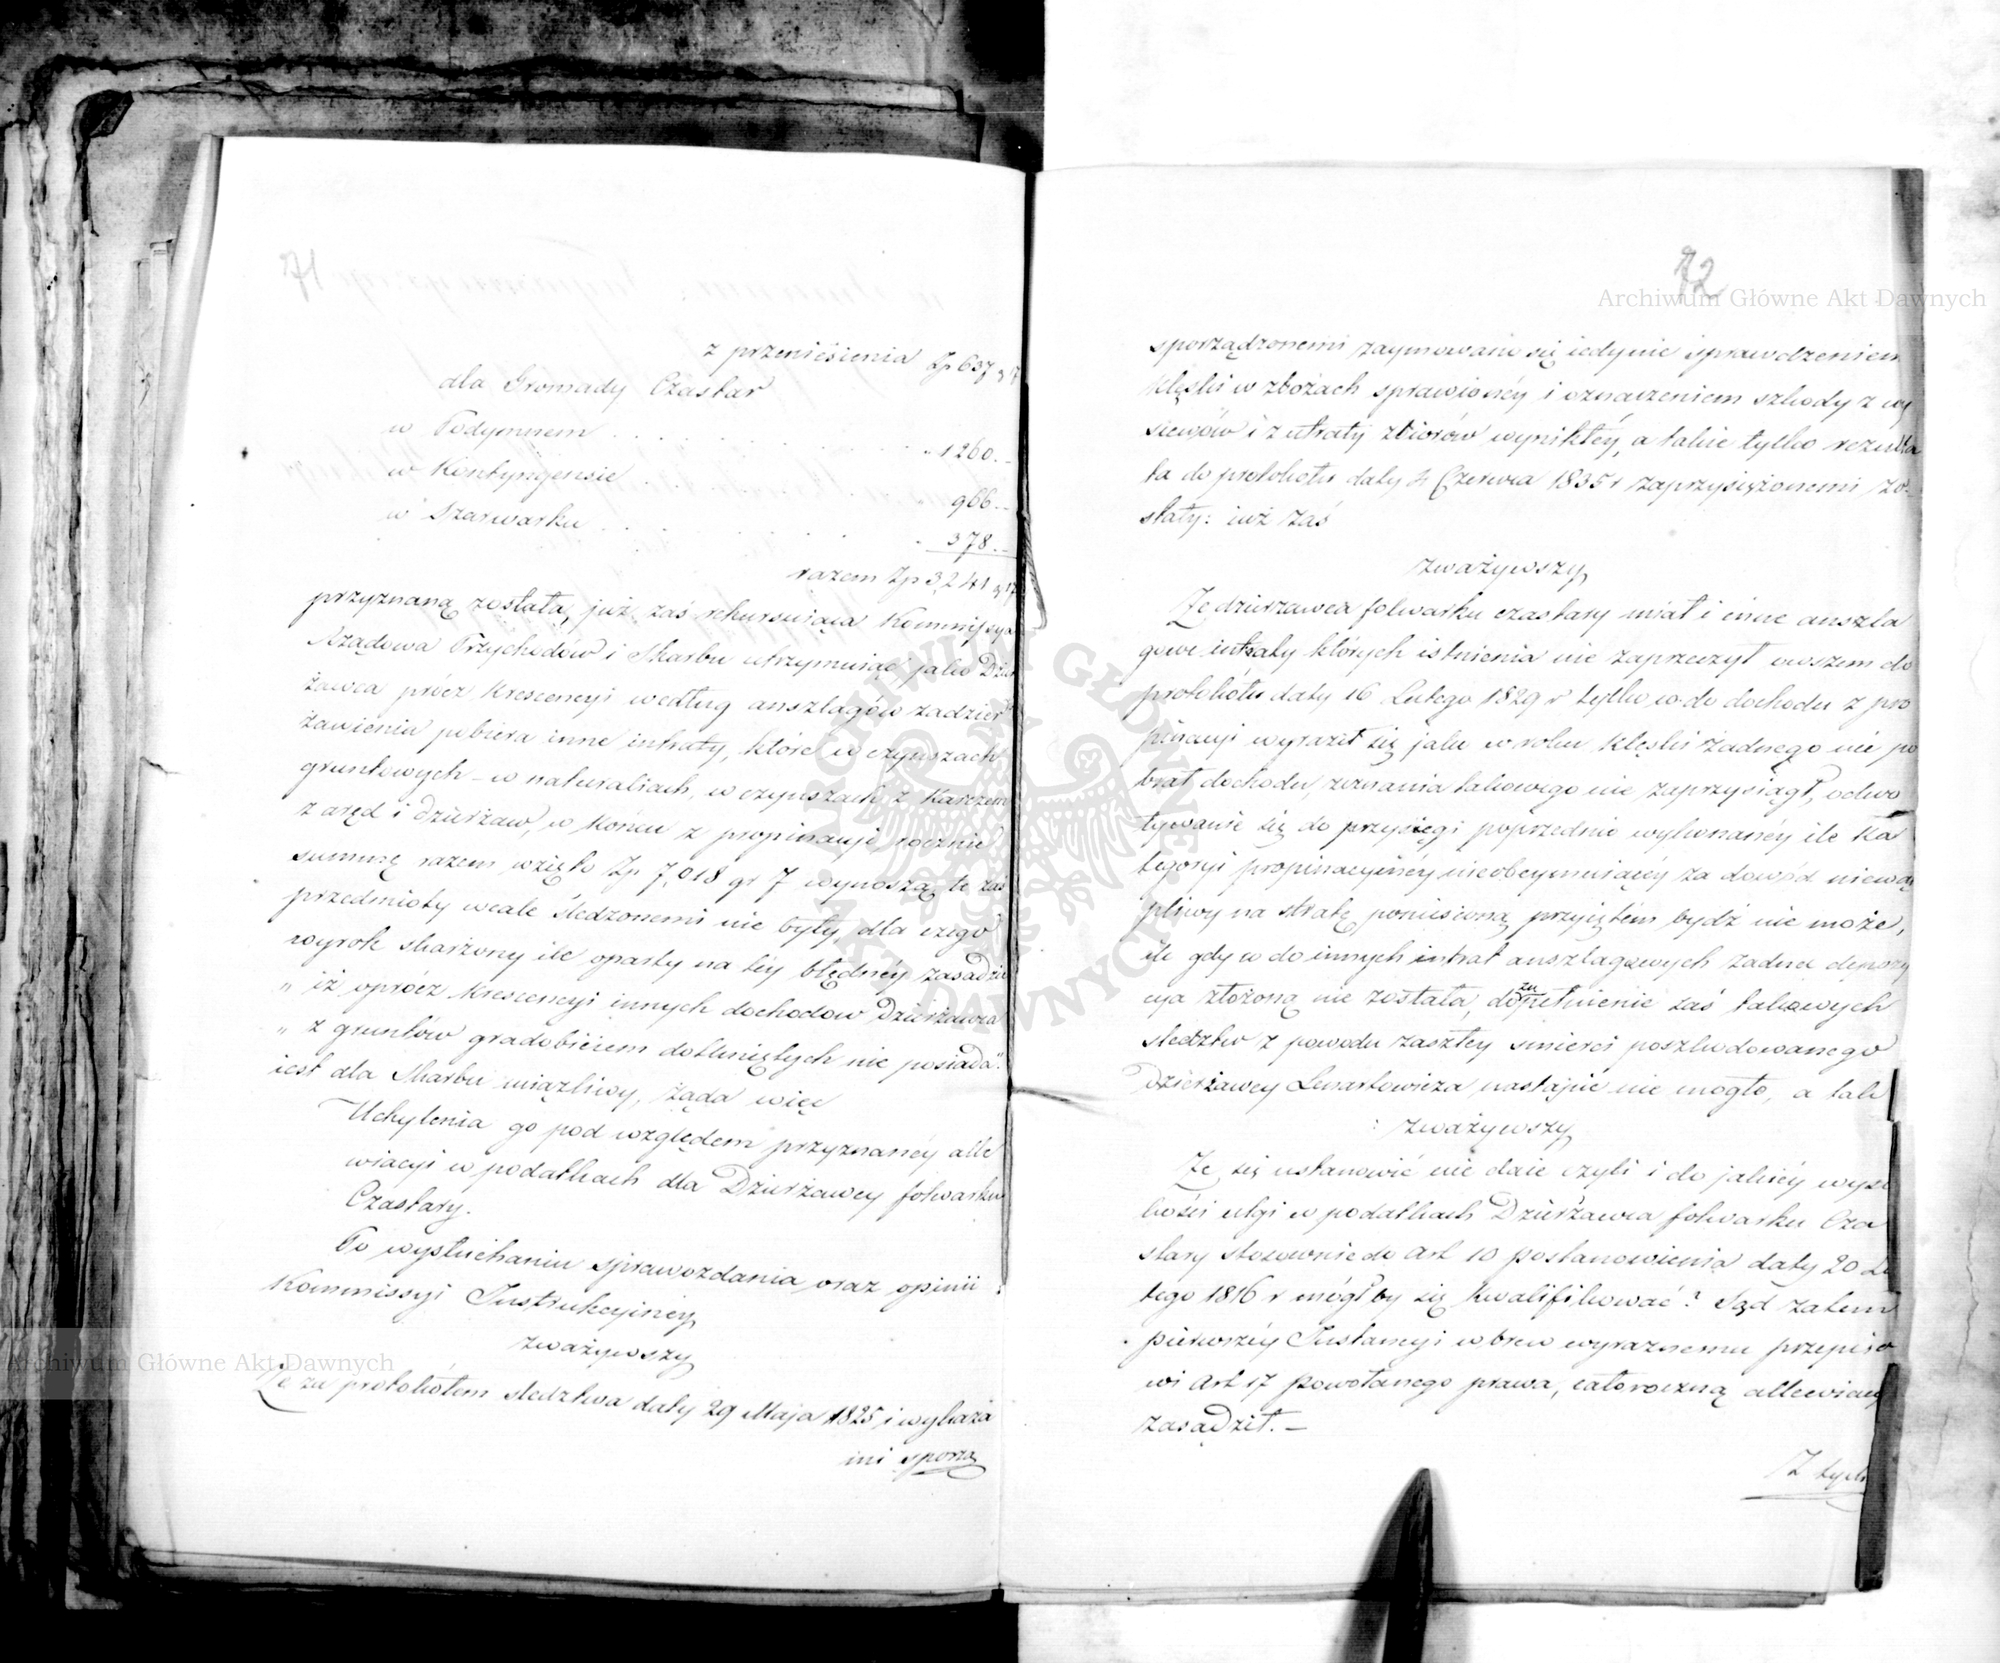 z przeniesienia Zp 637 g 17
dla Gromady Czastar
w Podymnem . . . . " 1260. _
w Kontyngensie . . . 966. _
w Szarwarku . . . " 378. _
razem Zp 3,241 g 17
przyznaną została, już zaś rekursuiąca Kommissya
Rządowa Przychodów i Skarbu utrzymuiąc, jako Dzier
żawca prócz krescencyi według anszlagów zadzier
żawienia pobiera inne intraty, które w czynszach
gruntowych – w naturaliach, w czynszach z karczem
z aręd i dzierżaw, w końcu z propinacyi, rocznie
summę razem wzięto Zp 7,018 gr 7 wynoszą, te zaś
przedmioty wcale śledzonemi nie były, dla czego
wyrok skarżony ile oparty na téy błędnéy zasadzie
„ iż oprócz krescencyi innych dochodow Dzierżawca
„ z gruntów gradobiciem dotkniętych nie posiada"
iest dla Skarbu uciążliwy, żąda więc
Uchylenia go pod względem przyznanéy alle
wiacyi w podatkach dla Dzierżawcy folwarku
Czastary.
Po wysłuchaniu sprawozdania oraz opinii
Kommissyi Instrukcyinéy
zważywszy
Że za protokółem śledztwa daty 29 Maja 1825 i wykaza
mi sporzą
71
72
sporządzonemi zaymowano się iedynie sprawdzeniem
klęski w zbożach sprawionéy i oznaczeniem szkody z wy
siewów i z utraty zbiorów wynikłéy, a takie tylko rezulta
ta do protokołu daty 4 Czerwca 1835 r zaprzysiężonemi zo-
stały: już zaś
zważywszy
Że dzierzawca folwarku czastary miał i inne anszla
gowe intraty których istnienia nie zaprzeczył owszem do
protokółu daty 16 Lutego 1829 r tylko co do dochodu z pro
pinacyi wyraził się jako w roku klęski żadnego nie po
brał dochodu, zeznania takowego nie zaprzysiągł, odwo
ływanie się do przysięgi poprzednio wykonanéy ile ka
tegoryi propinacyinéy nieobeymuiącéy za dowód niewąt
pliwy na stratę poniesioną przyiętém bydź nie może,
ile gdy co do innych intrat anszlagowych żadna depozy
cya złożoną nie została, dozupełnienie zaś takowych
śledztw z powodu zaszłey smierci poszkodowanego
Dzierżawcy Lenartowicza nastąpić nie mogło, a tak
zważywszy
Że się ustanowić nie daie czyli i do jakiéy wyso
kości ulgi w podatkach Dzierżawca folwarku Cza
stary stosownie do Art 10 postanowienia daty 20 Lu
tego 1816 r mógłby się kwalifikować? Sąd zatem
pierwszéy Instancyi wbrew wyraznemu przepiso
wi Art 17 powołanego prawa, całoroczną allewiacyę
zasądził. –
Z tych
Archiwum Główne Akt Dawnych
Archiwum Główne Akt Dawnych
ARCHIWUM GŁÓWNE AKT DAWNYCH